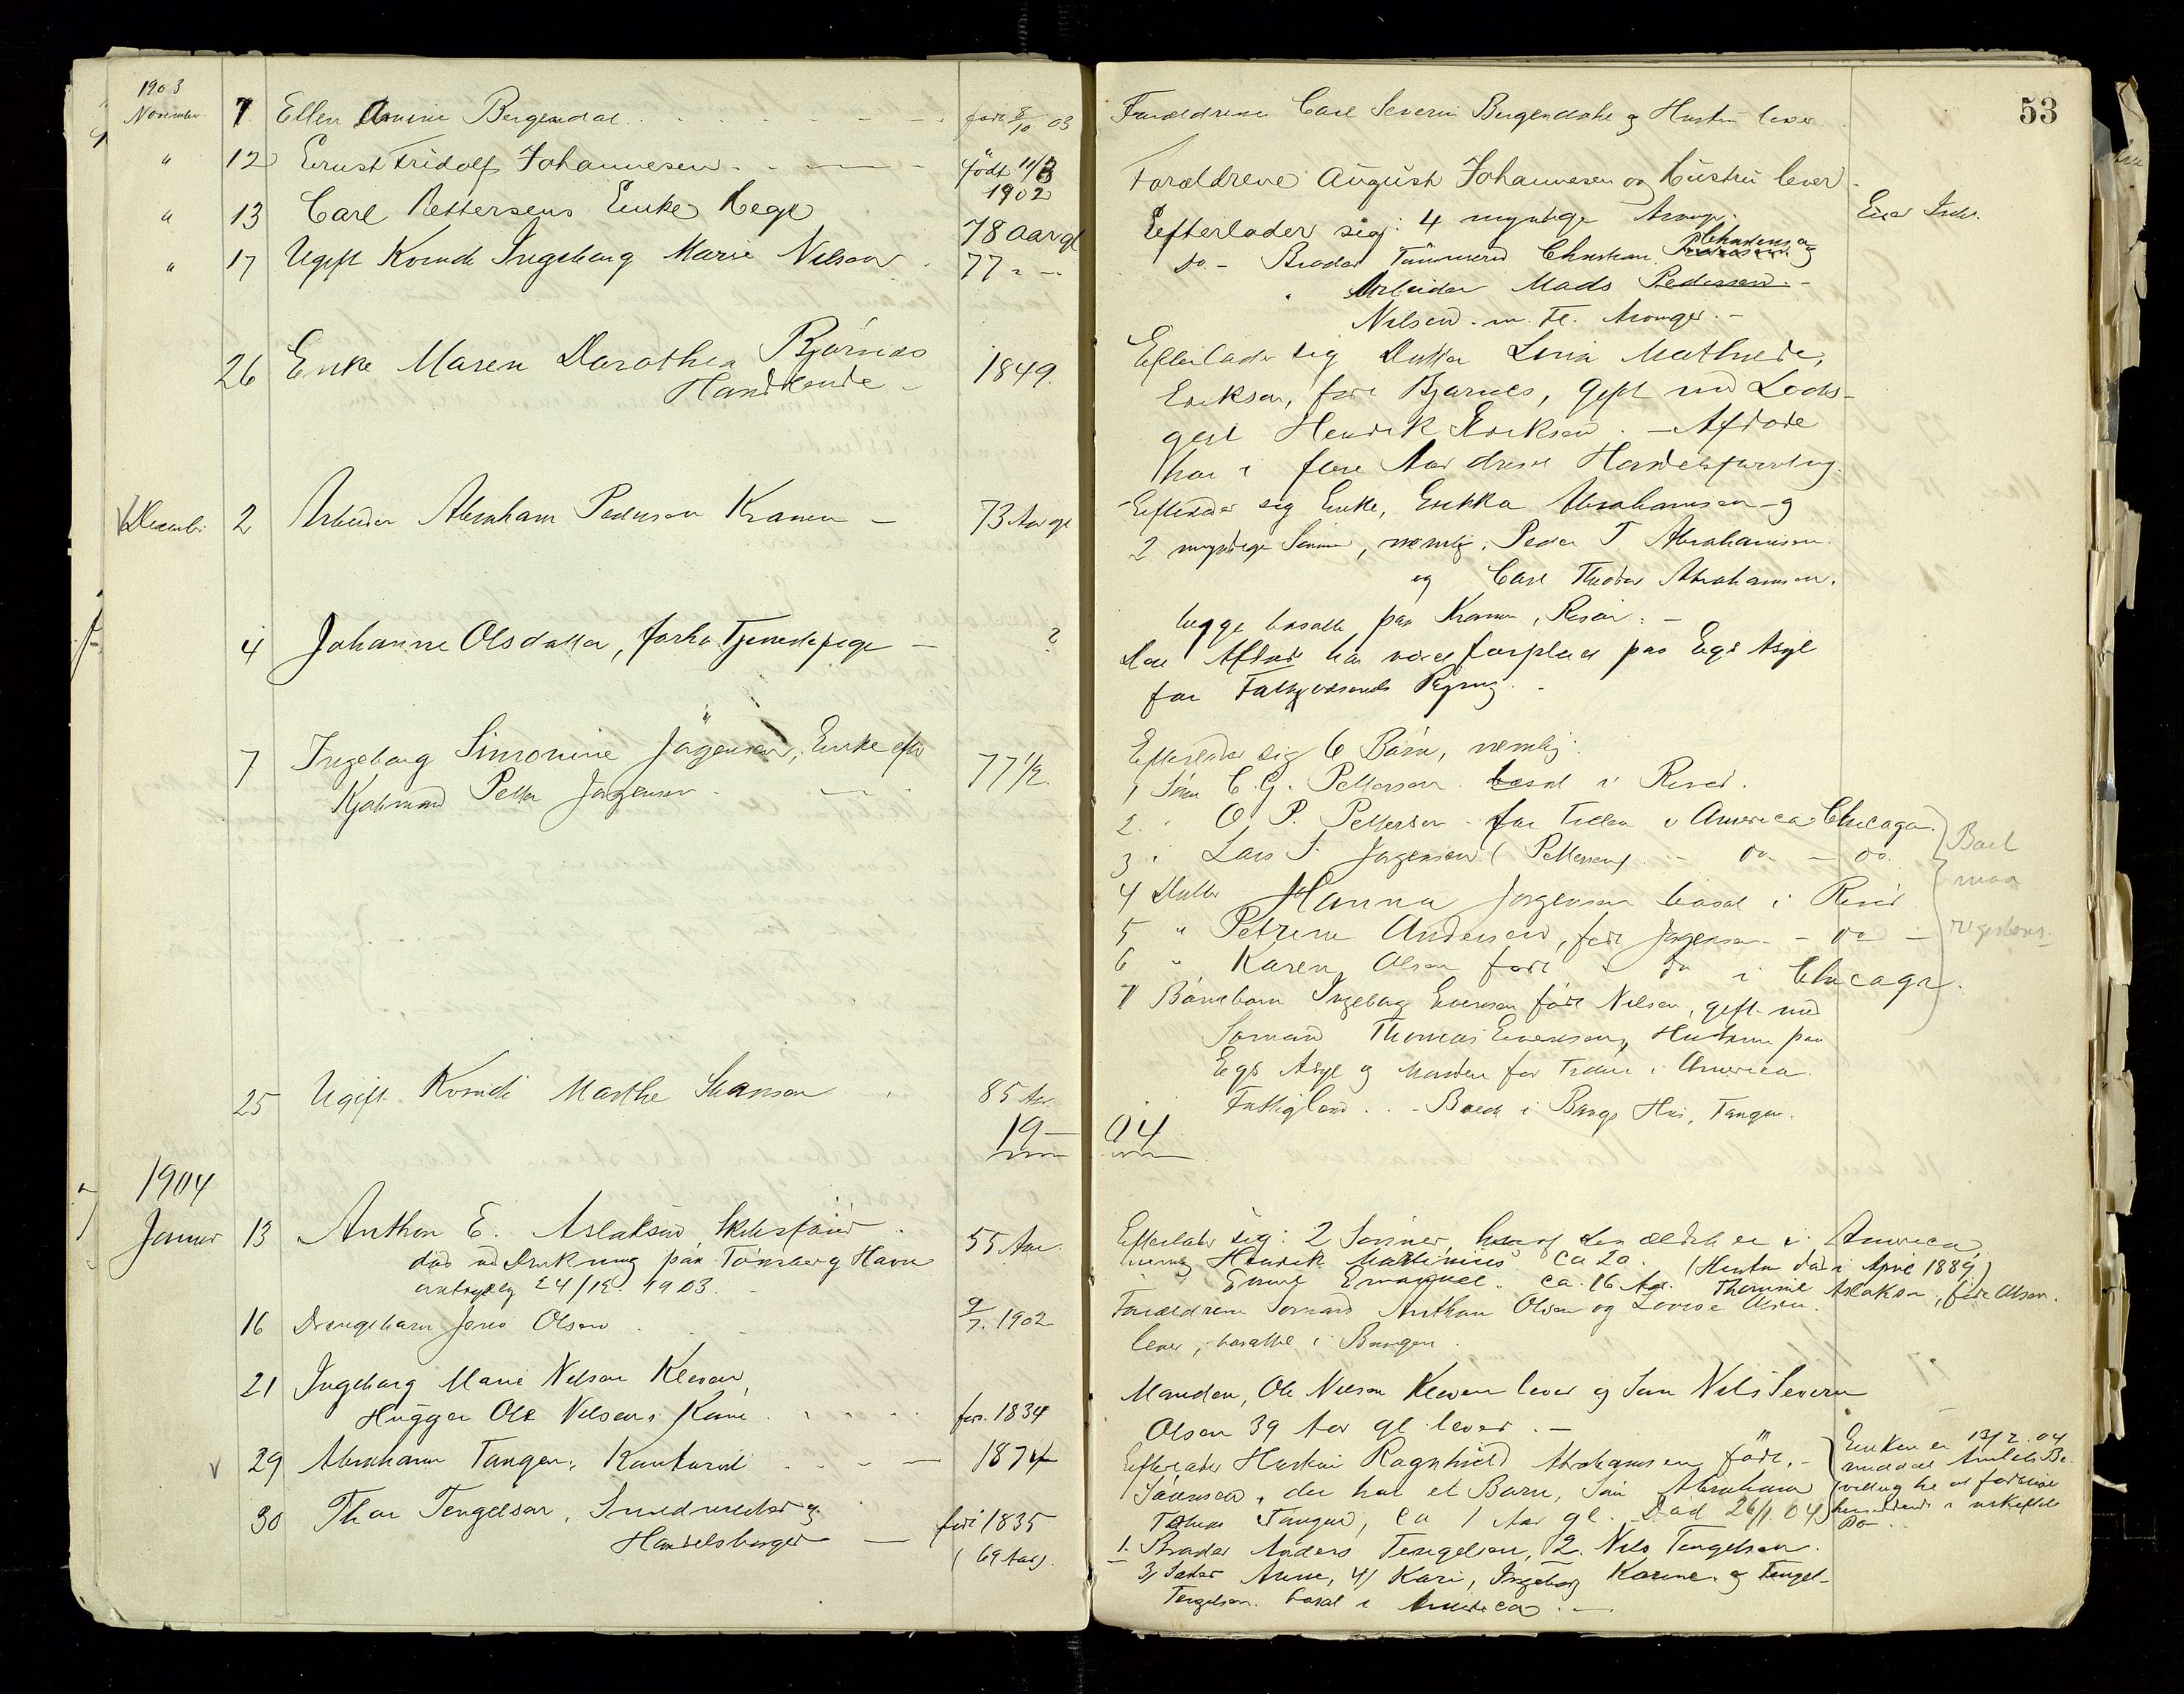 53
1903
November. 7 Ellen Amine Bergendal født 8/10 03
Forældrene Carl Severin Bergendahl og Hustru lever.
" 12 Ernst Fridolf Johannesen født 11/8 1902
Forældrene August Johannesen og Hustru lever.
" 13 Carl Pettersens Enke Hege 78 Aar gl
Efterlader sig: 4 myndige Arvinger.
" 17 Ugift Kvinde Ingeborg Marie Nilsen 77 " -
do - Broder Tømmermd Christian Pedersen og
Arbeider Mads Pedersen. -
Nilsen. m. Fl. Arvinger. -
26 Enke Maren Dorothea Bjørnes
Handlende - 1849.
Efterlader sig Datter Lovise Mathilde,
Eriksen, født Bjørnes, gift med Lods-
gut Hendrik Eriksen. - Afdøde
har i flere Aar drevet Handelsforretning.
Decemb. 2 Arbeider Abraham Pedersen Kranen - 73 Aar gl
Efterlader sig Enke, Enkka Abrahamsen og
2 myndige Sønner, nemlig: Peder T. Abrahamsen.
og Carl Theodor Abrahamsen.
begge bosatte paa Kranen, Risør. -
4 Johanne Olsdatter, forhv Tjenestepige - ?
Den Afdøde har været forpleiet paa Eqs Asyl
for Fattigvæsenets Regning. -
7 Ingeborg Simonine Jørgensen, Enke efter
Kjøbmand Petter Jørgensen. 77 1/2.
Efterlader sig 6 Børn, nemlig:
1 Søn C. G. Pettersen bosat i Risør.
2. " O. P. Pettersen for Tiden i America Chicago.
3 " Lars S. Jørgensen (Pettersen) - do - do.
4 Datter Hanna Jørgensen bosat i Risør
5 " Petrine Andersen, født Jørgensen - do -
6 " Karen Olsen født " do i Chicago.
Boet
maa
registreres.
7 Barnebarn Ingeborg Evensen født Nilsen, gift med
Sømand Thomas Evensen, Hustruen paa
Eqs Asyl og Manden for Tiden i America.
25 Ugift Kvinde Marthe Svensen 85 Aar.
Fattiglem. . - Boede i Bangs Hus, Tangen.
19 - 04
1904
Januar 13 Anthon E. Aslaksen, Skibsfører.
død ved Drukning paa Tønsberg Havn
antagelig 24/12. 1903. - 55 Aar.
Efterlader sig: 2 Sønner, hvoraf den ældste er i America,
nemlig Hendrik Martinius ca 20. (Hustru død i April 1889)
Emil Emanuel ca. 16 Aar. Thomine Aslaksen, født Olsen.
16 Drengebarn Jens Olsen 9/7. 1902
Forældrene Sømand Anthon Olsen og Lovise Olsen
lever, bosatte i Buugen.
21 Ingeborg Marie Nilsen Kleven,
Hugger Ole Nilsens Kone. født. 1834
Manden, Ole Nilsen Kleven lever og Søn Nils Severin
Olsen 39 Aar gl. lever. -
29 Abraham Tangen, Kontorist 1874
Efterlader Hustru Ragnhild Abrahamsen født. -
Sørensen, der har et Barn, Søn Abraham
Tobias Tangen, ca 1 Aar gl. Død 26/1 04
Enken er 13/2 04
meddelt Amtets Be-
villing til at forblive
hensiddende i uskiftet
Bo -
30 Thor Tengelsen, Smedmester og
Handelsborger - født 1835
(69 Aar).
1. Broder Anders Tengelsen, 2. Nils Tengelsen.
3/ Søster Anne, 4/ Kari, Ingeborg Karine. og Tengel
Tengelsen. bosat i America. -